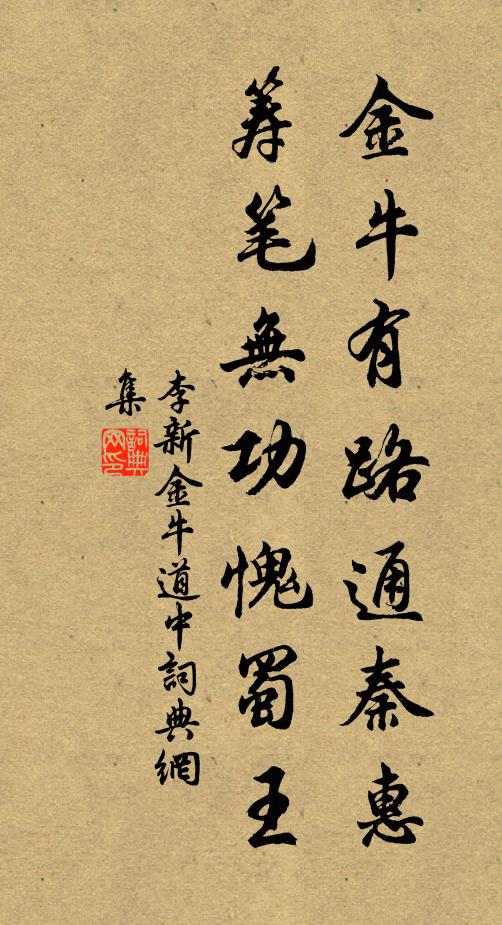 金牛有路通秦惠
筹笔無功愧蜀王
李新金牛道中詞典網
集
詞典
网印